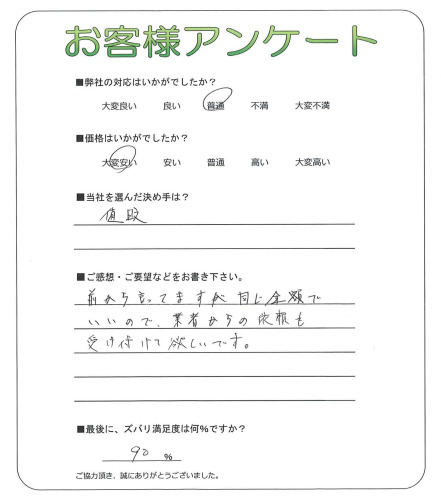 お客様アンケート
■弊社の対応はいかがでしたか？
大変良い 良い 普通 不満 大変不満
■価格はいかがでしたか？
大変安い 安い 普通 高い 大変高い
■当社を選んだ決め手は？
値段
■ご感想・ご要望などをお書き下さい。
前から言ってますが同じ金額で
いいので、業者からの依頼も
受け付けて欲しいです。
■最後に、ズバリ満足度は何％ですか？
90 ％
ご協力頂き、誠にありがとうございました。